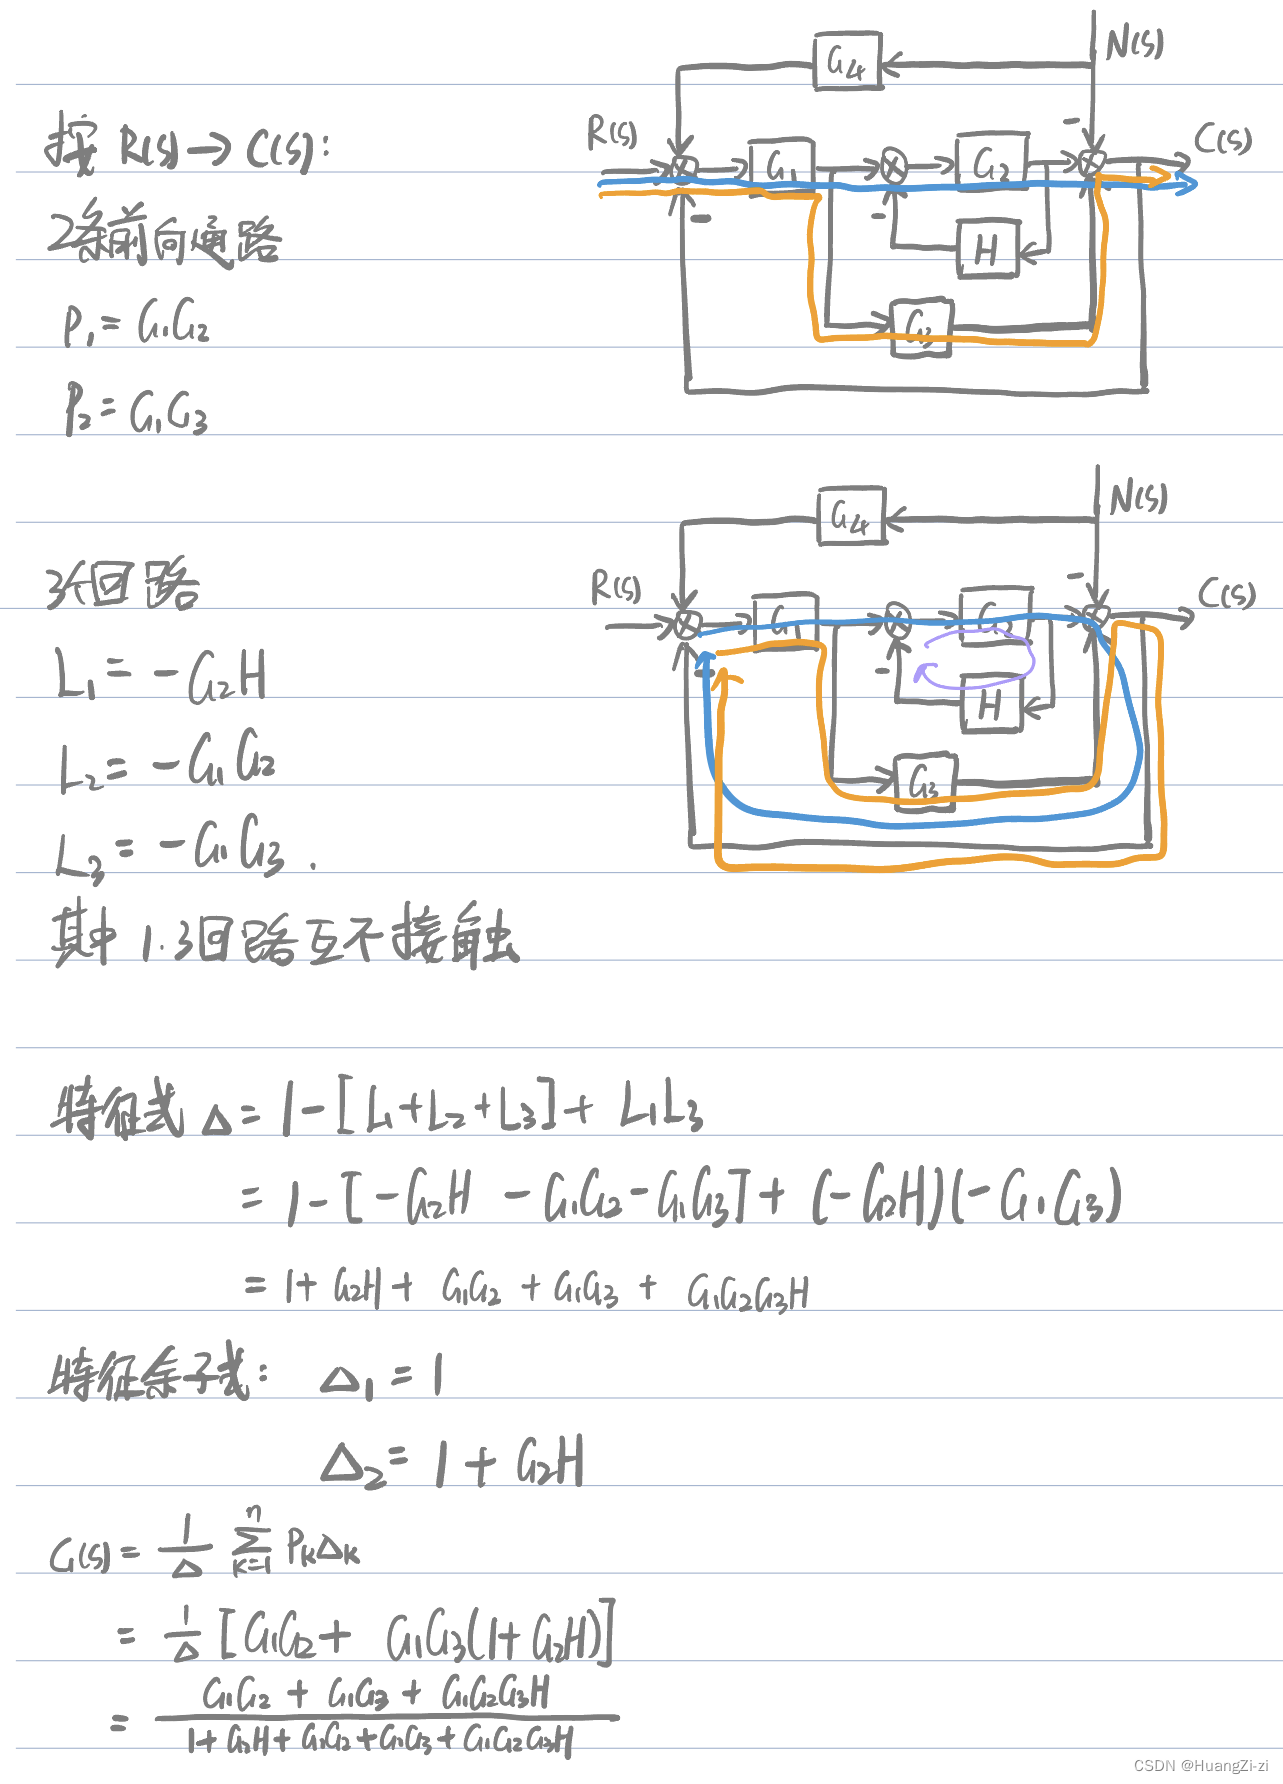 按 R(s)→C(s):
2条前向通路
P₁=G₁G₂
P₂=G₁G₃
N(s)
G₄
R(s)
G₁
G₂
C(s)
H
G₃
3个回路
L₁=-G₂H
L₂=-G₁G₂
L₃=-G₁G₃.
其中 1.3回路互不接触
N(s)
G₄
R(s)
G₁
G₂
C(s)
H
G₃
特征式 Δ=1-[L₁+L₂+L₃]+L₁L₃
=1-[-G₂H-G₁G₂-G₁G₃]+(-G₂H)(-G₁G₃)
=1+G₂H+G₁G₂+G₁G₃+G₁G₂G₃H
特征余子式: Δ₁=1
Δ₂=1+G₂H
G(s)=1/Δ ∑ₖ₌₁ⁿ PₖΔₖ
=1/Δ[G₁G₂+G₁G₃(1+G₂H)]
=(G₁G₂+G₁G₃+G₁G₂G₃H)/(1+G₂H+G₁G₂+G₁G₃+G₁G₂G₃H)
CSDN @HuangZi-zi